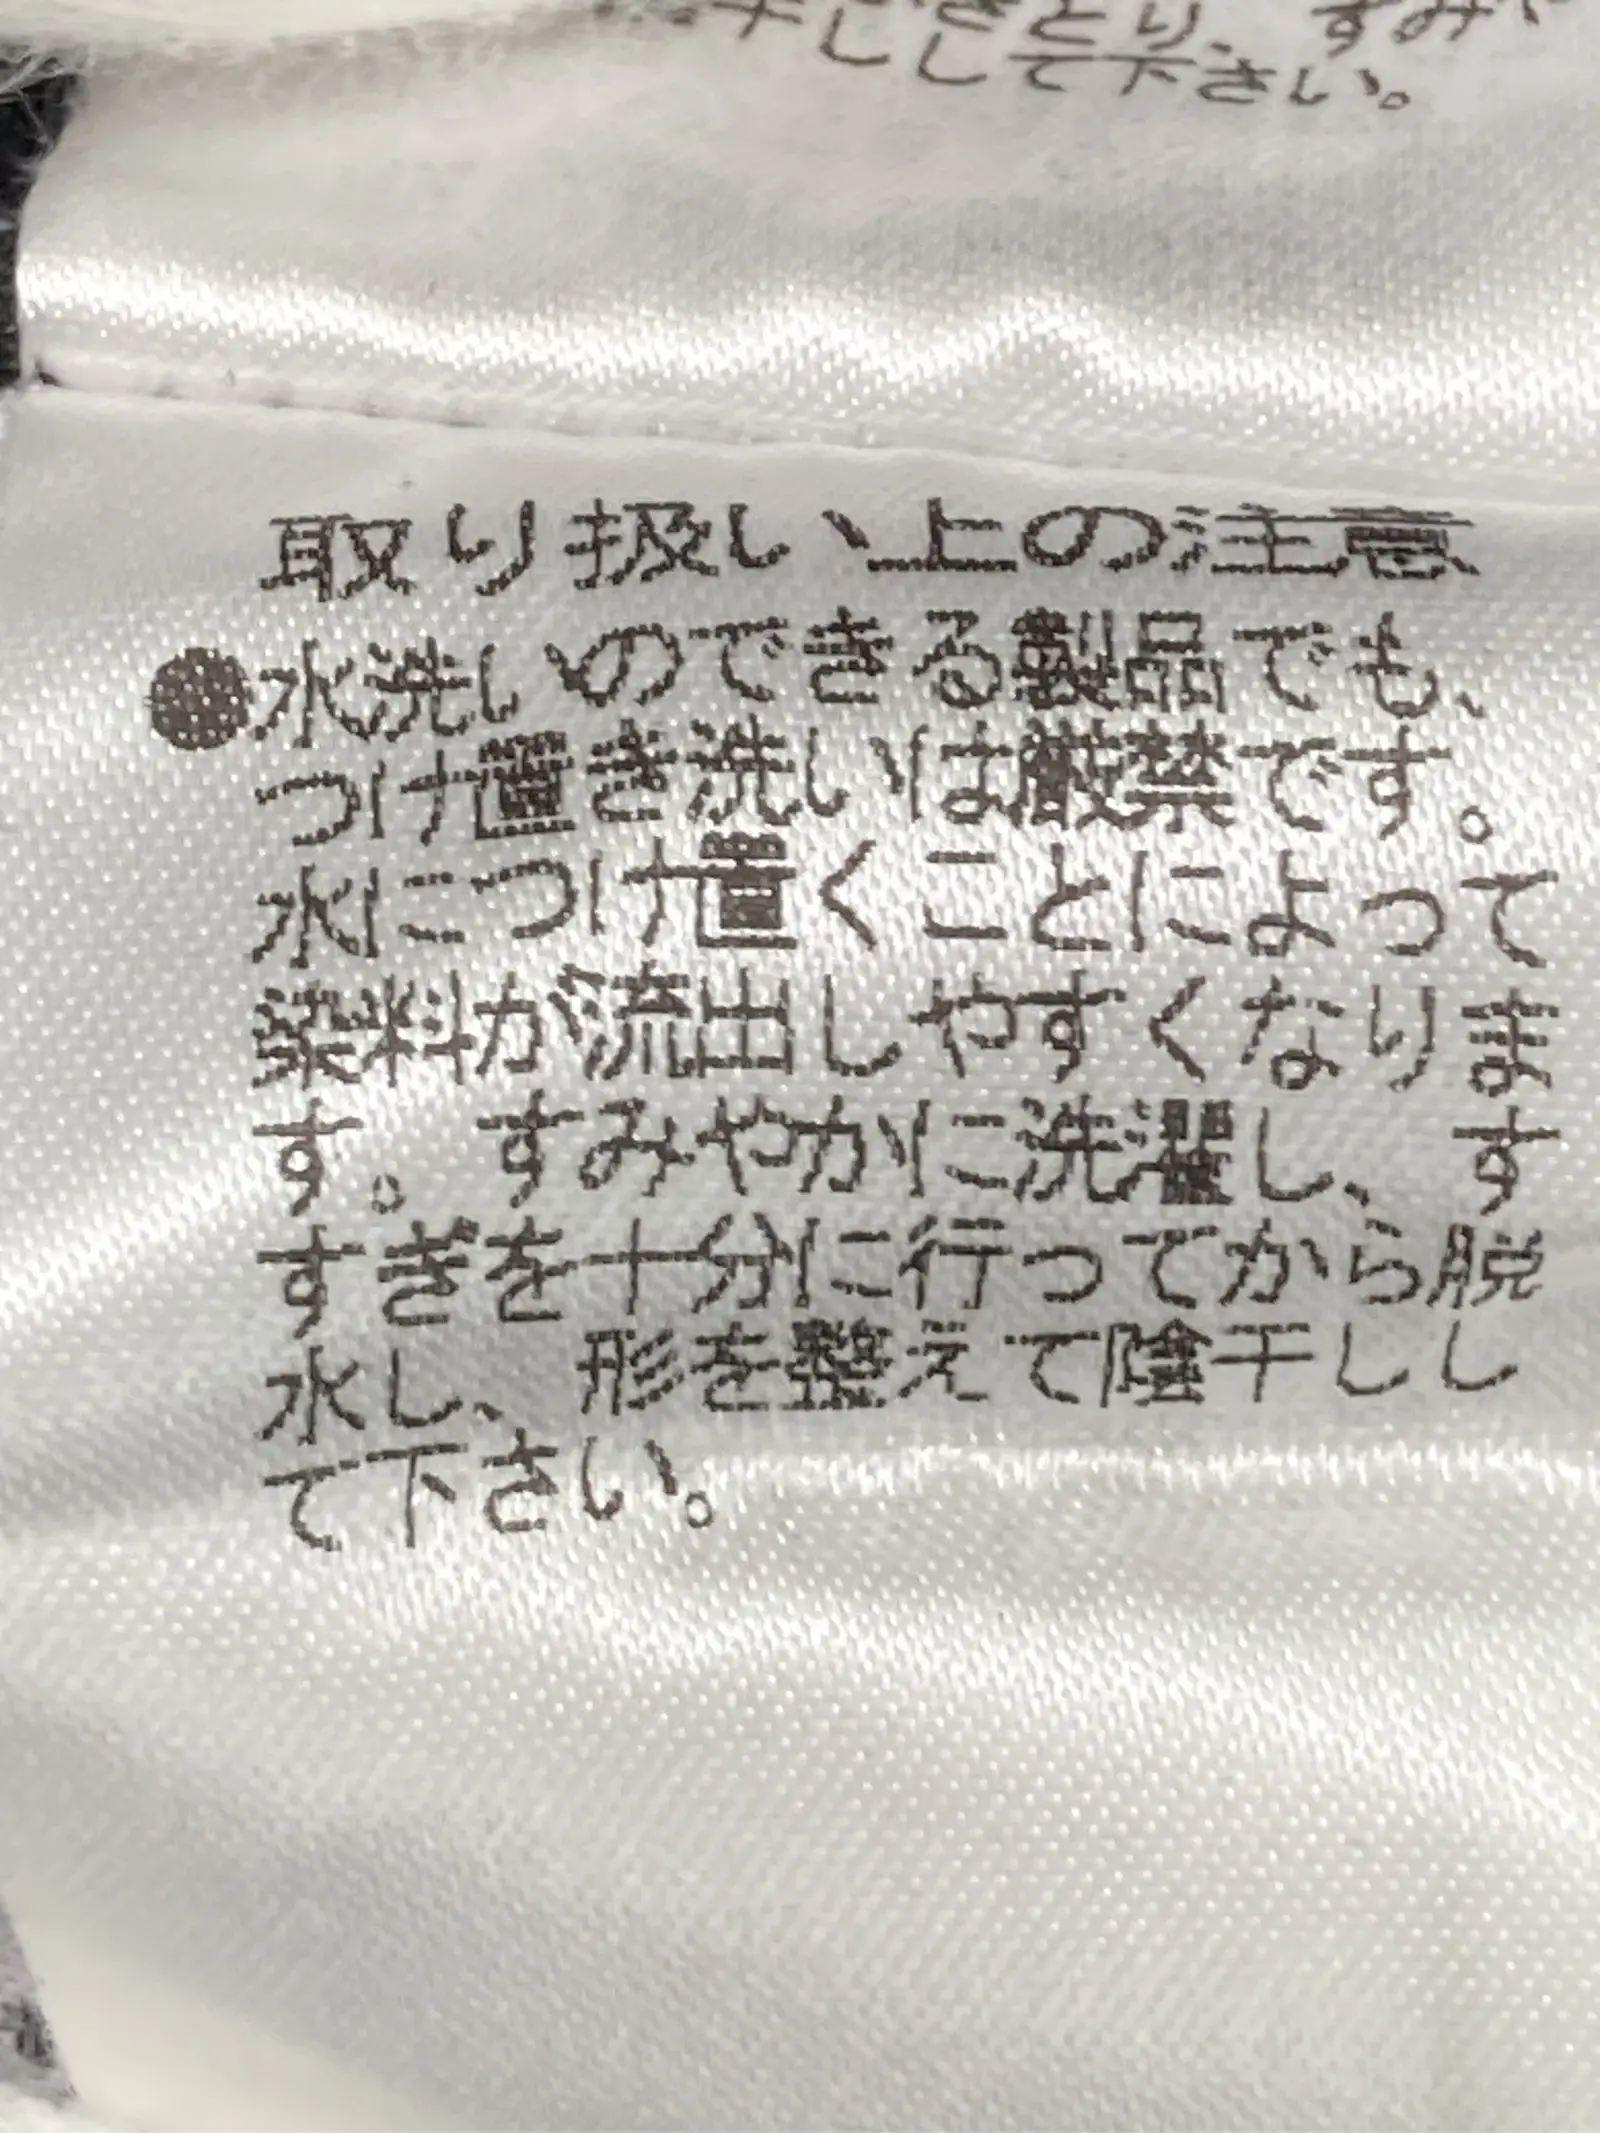 干しして下さい。
取り扱い上の注意
●水洗いのできる製品でも、
つけ置き洗いは厳禁です。
水につけ置くことによって
染料が流出しやすくなりま
す。すみやかに洗濯し、す
すぎを十分に行ってから脱
水し、形を整えて陰干しし
て下さい。